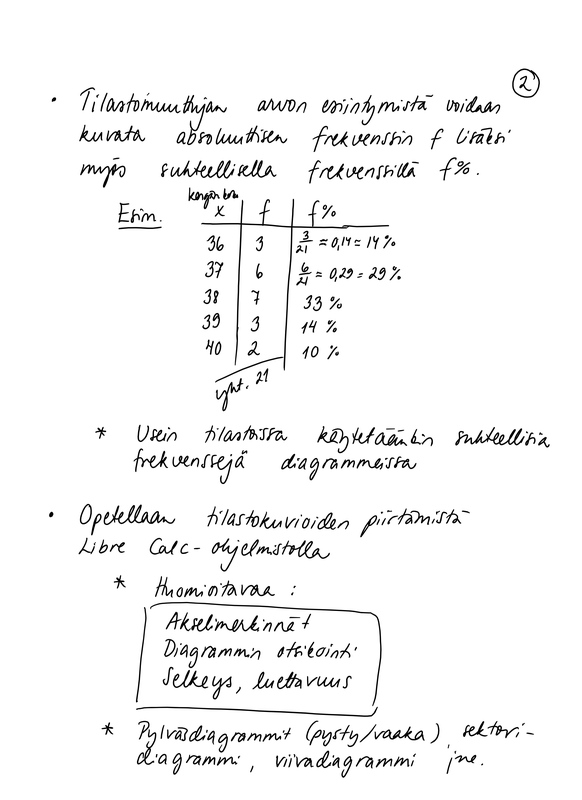 2
• Tilastomuuttujan arvon esiintymistä voidaan
kuvata absoluuttisen frekvenssin f lisäksi
myös suhteellisella frekvenssillä f%.
Esim.
kengän koko
x f f%
36 3 3/21 ≈ 0,14 = 14 %
37 6 6/21 ≈ 0,29 = 29 %
38 7 33 %
39 3 14 %
40 2 10 %
yht. 21
* Usein tilastoissa käytetäänkin suhteellisia
frekvenssejä diagrammeissa
• Opetellaan tilastokuvioiden piirtämistä
Libre Calc-ohjelmistolla
* Huomioitavaa :
Akselimerkinnät
Diagrammin otsikointi
Selkeys, luettavuus
* Pylväsdiagrammit (pysty/vaaka), sektori-
diagrammi, viivadiagrammi jne.